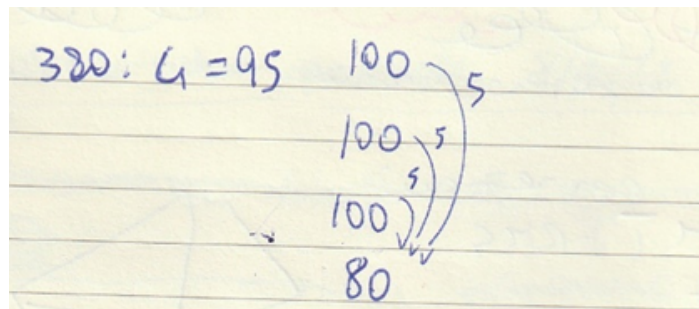 380 : 4 = 95
100
5
100
5
5
100
80